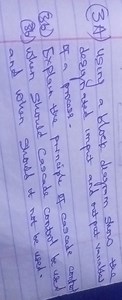 (3A) Using a block diagram show the
designated input and output variables
of a process.
(3b) Explain the principle of cascade control
(3c) When should cascade control be used
and when should it not be used.